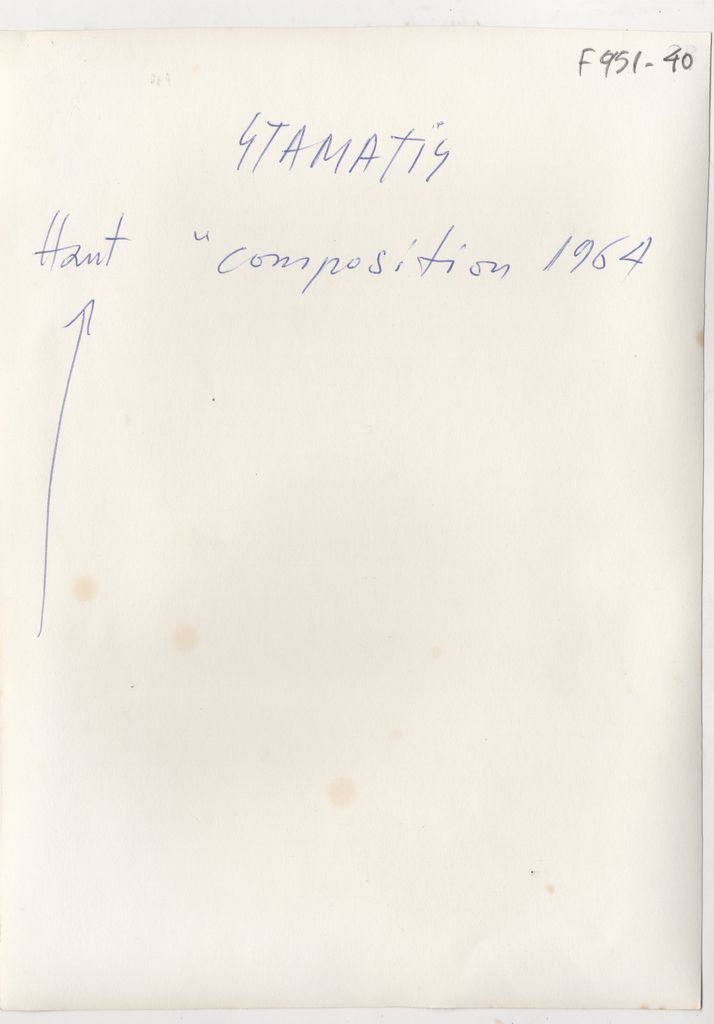 F951-40
STAMATIS
Haut "composition 1964